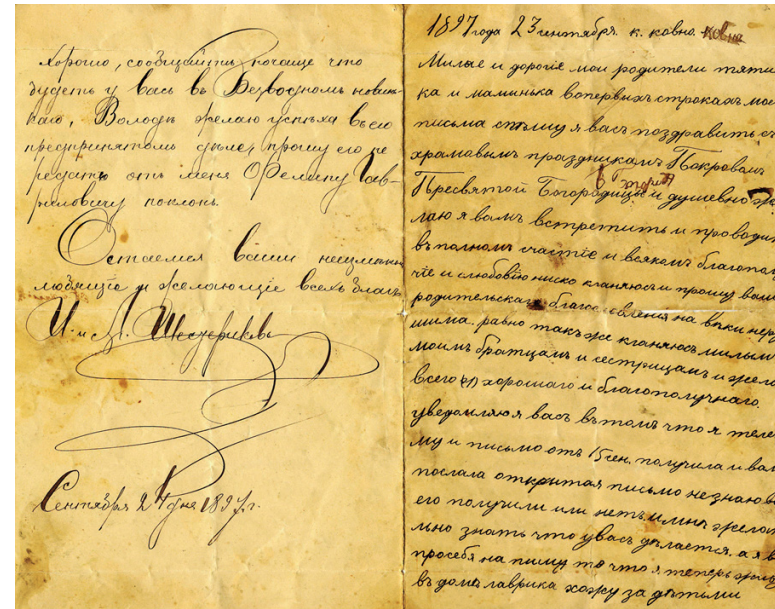 хорошо, сообщайте почаще что
будетъ у васъ въ Безводномъ новень-
каго, Володѣ желаю успѣха въ его
предпринятомъ дѣлѣ, прошу его пе
редать отъ меня Филипу Гав-
риловичу поклонъ.
Остаемся ваши неизмѣнно
любящіе и желающіе всехъ благъ
И. и Шестериковы
Сентября 24 дня 1897 г.
1897 года 23 сентября. к. ковна. ковна
Милые и дорогіе мои родители тятинь
ка и маминька вопервыхъ строкахъ мое
письма спѣшу я васъ поздравить съ
храмовымъ праздникамъ Покровамъ
Пресвятой Богородицы и душевно же
лаю я вамъ встретить и проводить
въ полномъ счастіе и всякомъ благопол
чіе и слюбовію ниско кланяюсь и прошу ваше
родительскаго благословенія на вѣки неру
шима. равно такъ же кланяюсь милымъ
моимъ братцамъ и сестрицамъ и жела
всего хорошаго и благополучнаго.
уведомляю я васъ въ томъ что я теле
му и письмо отъ 15 сен. получила и вам
послала открытая письмо незнаю в
его получили или нетъ. и мнѣ желат
льно знать что у васъ дѣлается, а я в
просебя на пишу то что я теперь живу
въ доме лаврика хожу за дѣтьми